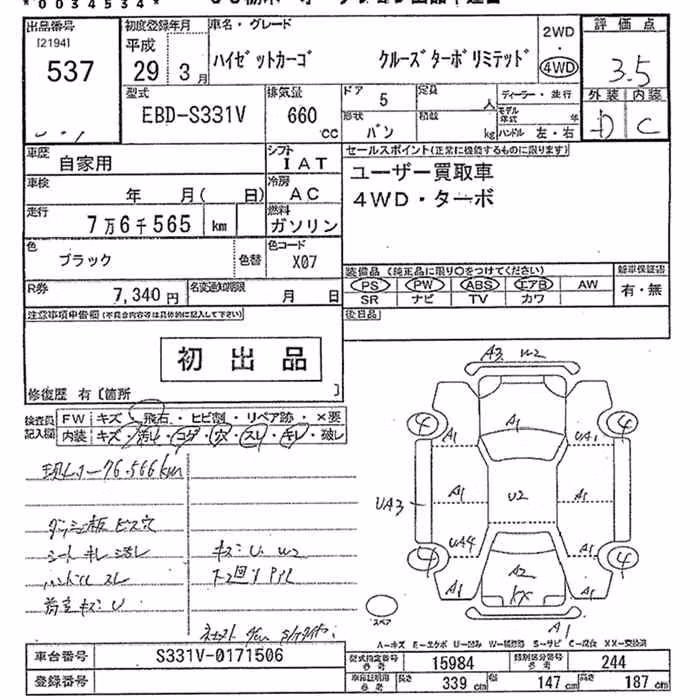 *0034534*
出品番号 初度登録年月 車名・グレード 2WD・4WD 評価点
[2194] 537 平成 29年 3月 ハイゼットカーゴ クルーズターボリミテッド 3.5
型式 EBD-S331V 排気量 660cc ドア 5 定員 人 ディーラー・並行 外装 内装
形状 バン 積載 kg モデル年式 年 ハンドル 左・右 D C
車歴 自家用 シフト IAT セールスポイント(正常に機能するものに限ります)
車検 年 月( 日) 冷房 AC ユーザー買取車
走行 7万6千565 km 燃料 ガソリン 4WD・ターボ
色 ブラック 色替 色コード X07
装備品 (純正品に限り○をつけてください) 新車保証書
PS PW ABS エアB AW 有・無
SR ナビ TV カワ
R券 7,340円 名変通知期限 月 日 後日品
注意事項申告欄(不具合内容等は具体的に記入して下さい)
初出品
修復歴 有〔箇所 〕
検査員記入欄 FW キズ・飛石・ヒビ割・リペア跡・×要
内装 キズ・汚れ・コゲ・穴・スレ・キレ・破レ
76,566km
ダッシュ板 ビス穴
シート キレ 汚レ
ハンドル スレ
キズ U W2
下回り
A3 W2
A1
4 4
A1 UA1
UA3 A1 U2 A1
UA4 A1
4 A2 4
A1 XX A1
A1
スペア
A-キズ E-エクボ U-凹み W-補修跡 S-サビ C-腐食 XX-交換済
車台番号 S331V-0171506 型式指定番号 参考 15984 類別区分番号 参考 244
登録番号 車検証明用 参考 長さ 339cm 幅 147cm 高さ 187cm